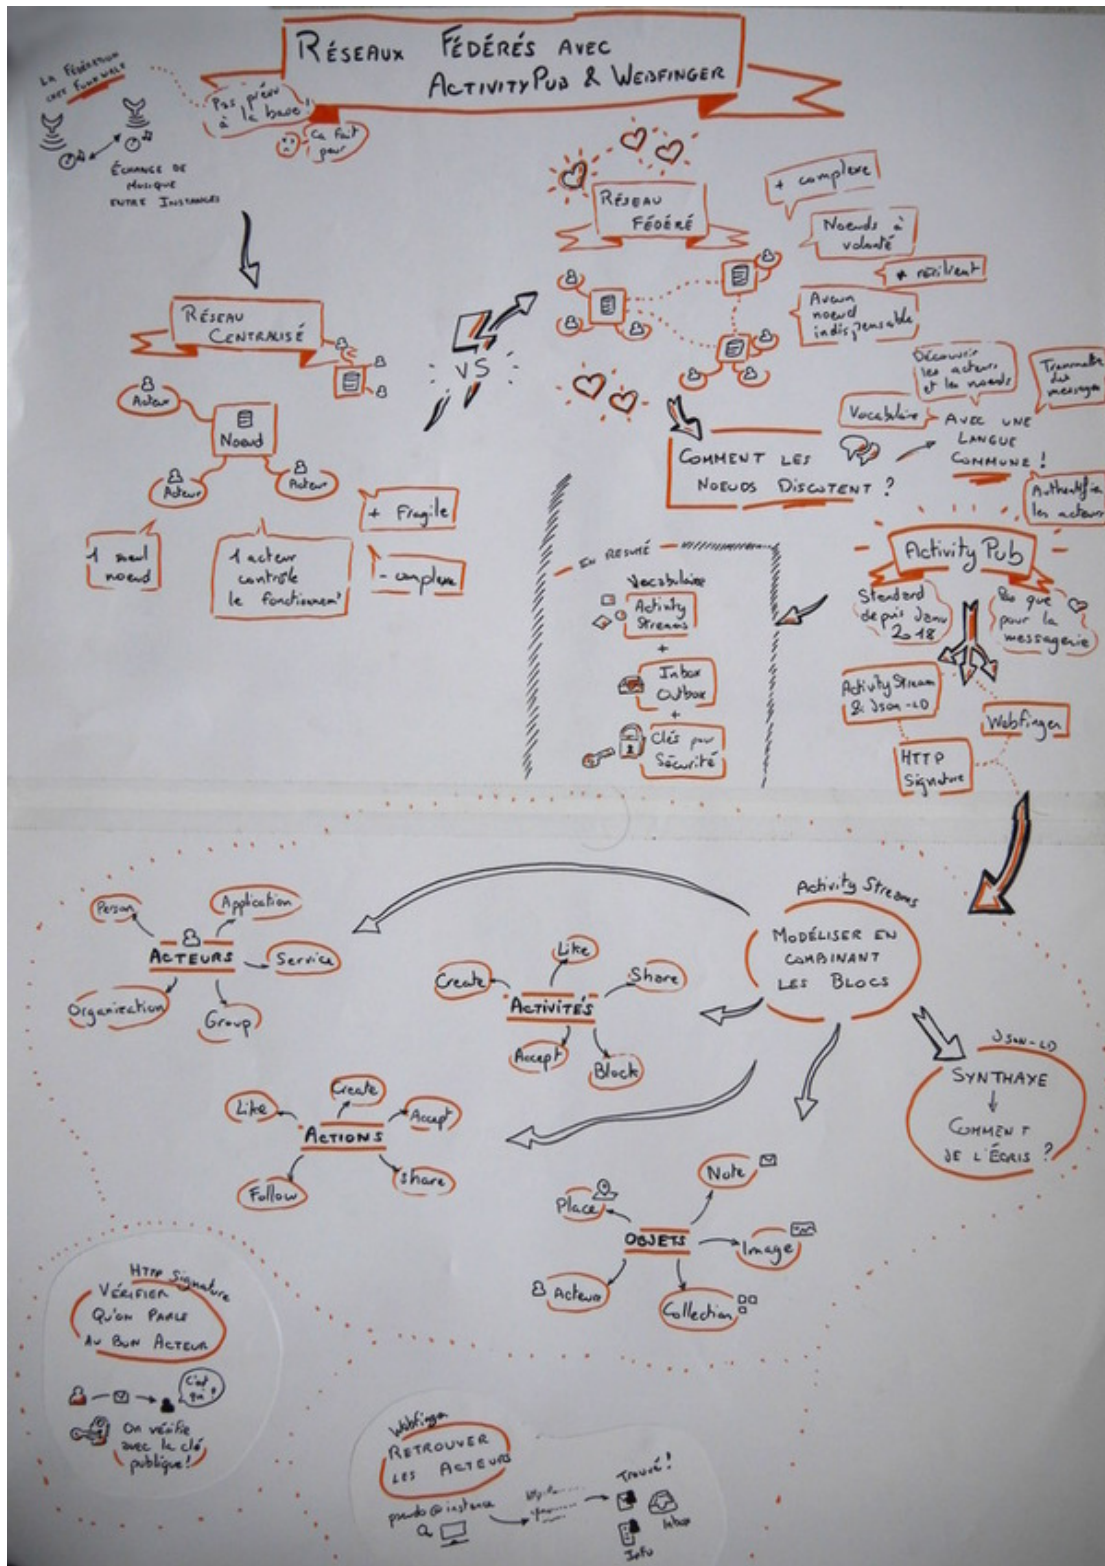 RÉSEAUX FÉDÉRÉS AVEC
ACTIVITYPUB & WEBFINGER
LA FÉDÉRATION
CHEZ FUNKWHALE
Pas prévu
à la base !
Ca fait
peur
ÉCHANGE DE
MUSIQUE
ENTRE INSTANCES
RÉSEAU
CENTRALISÉ
Acteur
Noeud
Acteur
Acteur
1 seul
noeud
1 acteur
contrôle
le fonctionnemt
+ Fragile
- complexe
VS
RÉSEAU
FÉDÉRÉ
+ complexe
Noeuds à
volonté
+ résilient
Aucun
noeud
indispensable
COMMENT LES
NOEUDS DISCUTENT ?
Vocabulaire
Découvrir
les acteurs
et les noeuds
Transmettre
des
messages
AVEC UNE
LANGUE
COMMUNE !
Authentifier
les acteurs
ActivityPub
Standard
depuis Janv
2018
Pas que
pour la
messagerie
ActivityStream
& Json-LD
WebFinger
HTTP
Signature
EN RESUMÉ
Vocabulaire
Activity
Streams
+
Inbox
Outbox
+
Clés pour
Sécurité
Activity Streams
MODÉLISER EN
COMBINANT
LES BLOCS
Person
Application
ACTEURS
Service
Organization
Group
Like
Create
Share
ACTIVITÉS
Accept
Block
Create
Like
Accept
ACTIONS
Follow
share
Json-LD
SYNTHAXE
COMMENT
JE L'ÉCRIS ?
Note
Place
OBJETS
Image
Acteurs
Collection
HTTP Signature
VÉRIFIER
QU'ON PARLE
AU BON ACTEUR
C'est
qui ?
On vérifie
avec la clé
publique !
Webfinger
RETROUVER
LES ACTEURS
pseudo@instance
Trouvé !
Inbox
Info